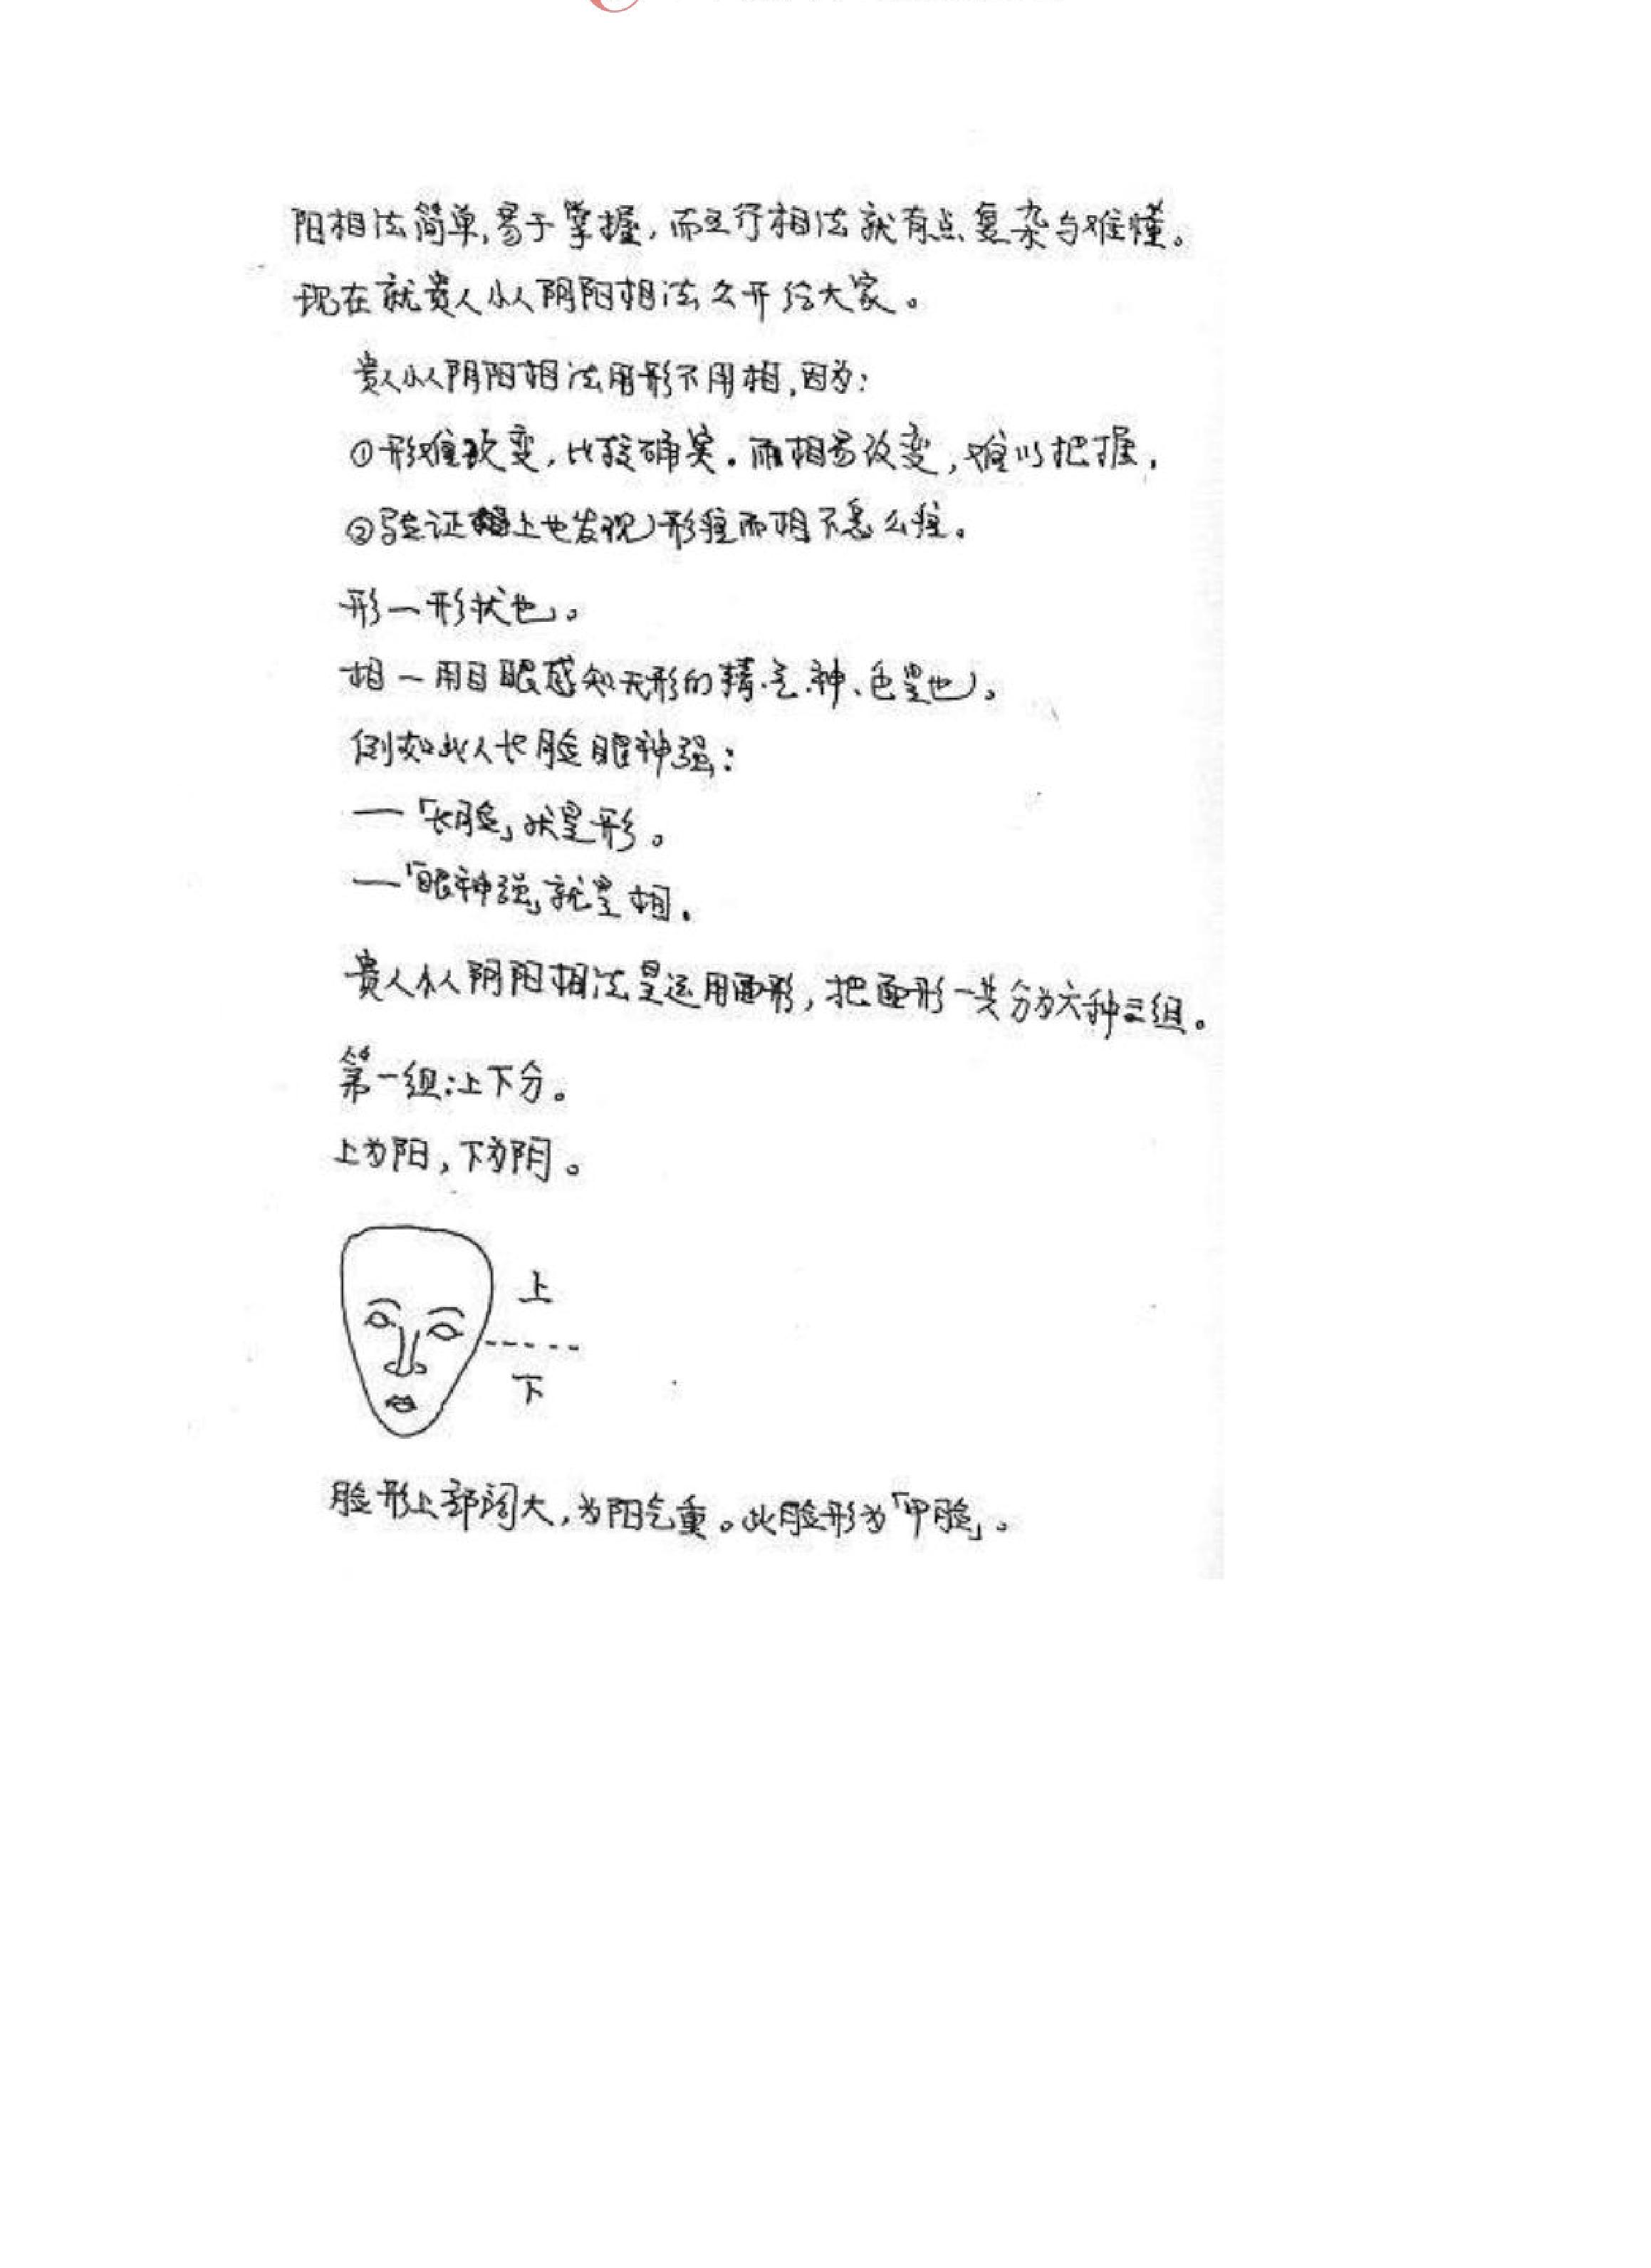 阳相法简单,易于掌握,而五行相法就有点复杂与难懂。
现在就贵人小人阴阳相法公开给大家。
贵人小人阴阳相法用形不用相,因为:
①形难改变,比较确实。而相易改变,难以把握,
②验证上也发现形准而相不怎么准。
形—形状也。
相—用目眼感知无形的精、气、神、色是也。
例如此人长脸眼神强:
—「长脸」就是形。
—「眼神强」就是相。
贵人小人阴阳相法是运用面形,把面形一共分为六种三组。
第一组:上下分。
上为阳,下为阴。
上
下
脸形上部阔大,为阳气重。此脸形为「甲脸」。